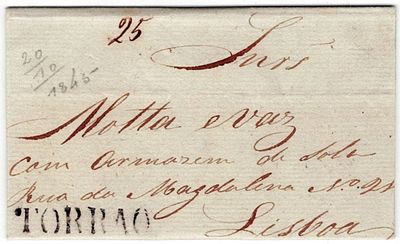 25
20
10
1845
Snrs
Motta e Vaz
com Armazem de Sola
Rua da Magdalena No. 91
TORRAO
Lisboa